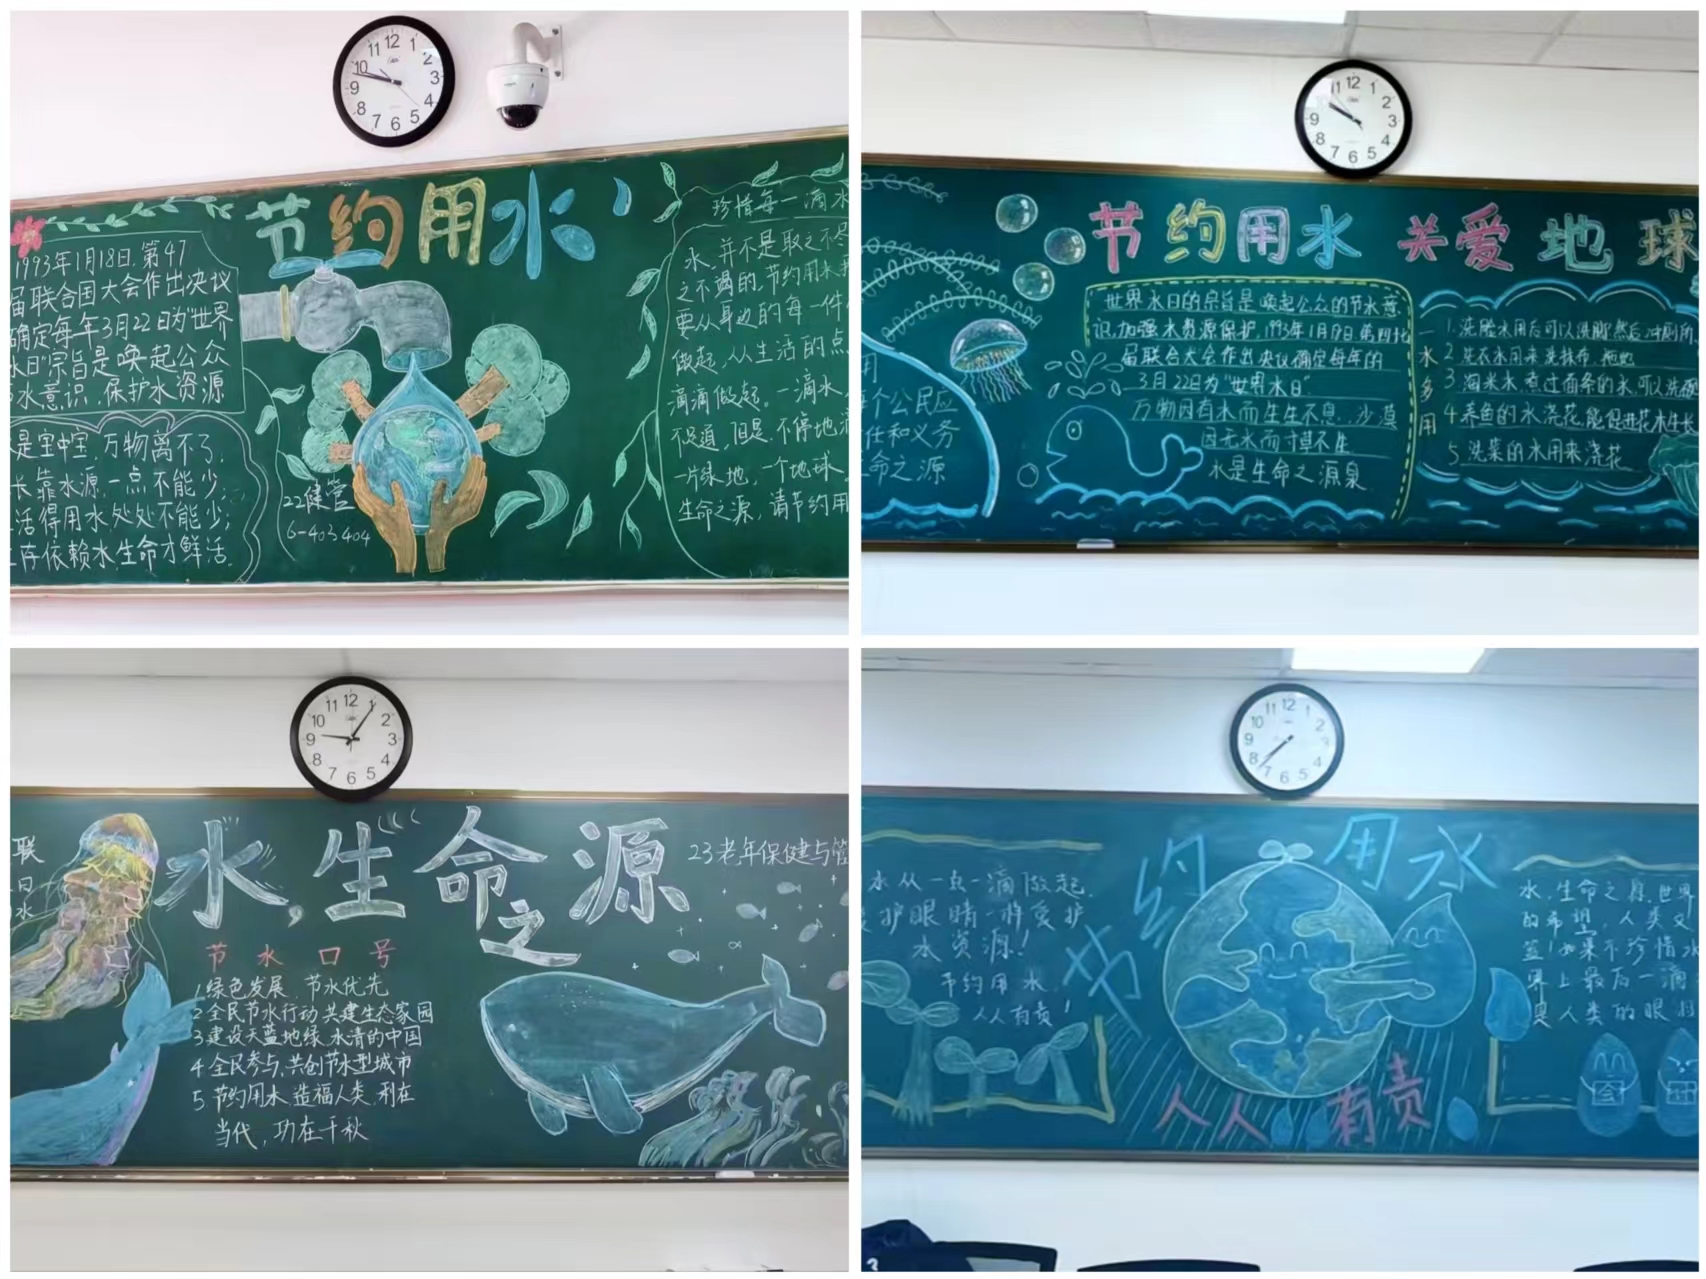 节约用水
1993年1月18日,第47
届联合国大会作出决议
确定每年3月22日为"世界
水日"宗旨是唤起公众
节水意识,保护水资源
是宝中宝,万物离不了,
长靠水源一点不能少;
活得用水处处不能少;
存依赖水,生命才鲜活.
22健管
6-403 404
珍惜每一滴水
水,并不是取之不尽
之不竭的,节约用水
要从身边的每一件
做起,从生活的点
滴滴做起.一滴水
不足道,但是,不停地
一片绿地,一个地球
生命之源,请节约用
节约用水 关爱地球
用
个公民应
任和义务
命之源
世界水日的宗旨是唤起公众的节水意
识,加强水资源保护,1993年1月18日第四十
届联合大会作出决议确定每年的
3月22日为"世界水日".
万物因有水而生生不息,沙漠
因无水而寸草不生
水是生命之源泉
一水多用
1.洗脸水用后可以洗脚,然后冲厕所
2 洗衣水用来洗抹布,拖地
3.淘米水煮过面条的水,可以洗碗
4.养鱼的水浇花,能促进花木生长
5 洗菜的水用来浇花
水,生命之源
23老年保健与管
联
日
水
节水口号
1.绿色发展,节水优先
2 全民节水行动 共建生态家园
3 建设天蓝地绿 水清的中国
4 全民参与,共创节水型城市
5 节约用水,造福人类,利在
当代,功在千秋
节约用水
人人有责
水从一点一滴做起,
护眼睛一样爱护
水资源!
节约用水,
人人有责!
水,生命之源,世界
的希望,人类文
如果不珍惜水
界上最后一滴
是人类的眼